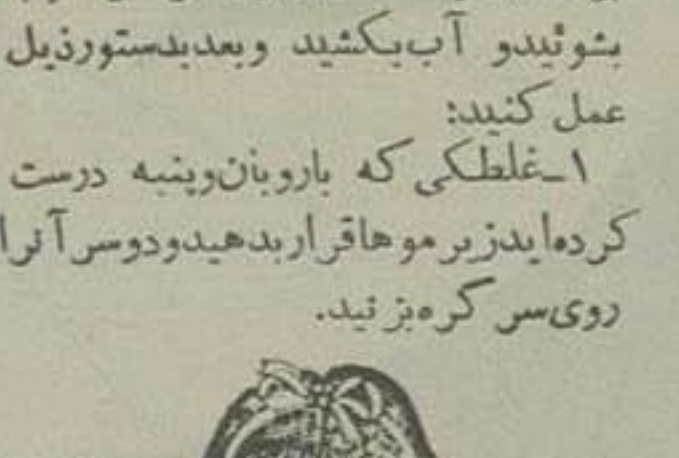 بشوئیدو آب بکشید وبعدبدستورذیل
عمل کنید:
۱ـغلطکی که باروبان‌وپنبه درست
کرده‌ایدزیر موهاقرار بدهیدودوسر آنرا
روی‌سر گره‌بزنید.